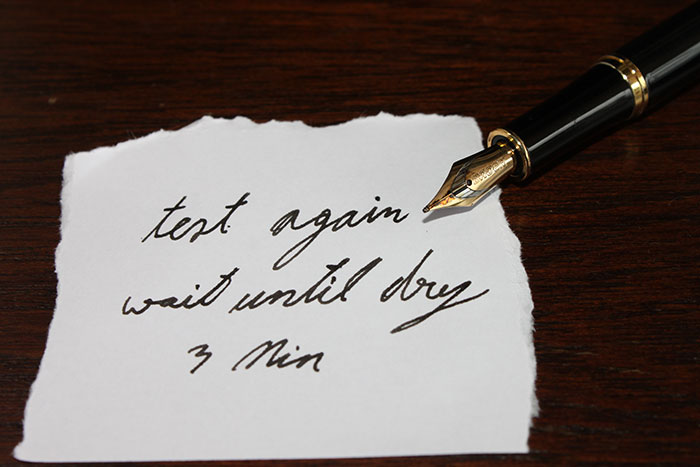 test again
wait until dry
3 Min